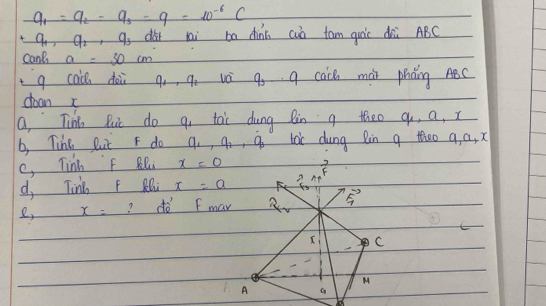 q₁ = q₂ = q₃ = q = 10⁻⁶ C
+ q₁, q₂, q₃ đặt tại ba đỉnh của tam giác đều ABC
cạnh a = 30 cm
+ q cách đều q₁, q₂ và q₃. q cách mặt phẳng ABC
đoạn x
a, Tính lực do q₁ tác dụng lên q theo q, a, x
b, Tính lực F do q₁, q₂, q₃ tác dụng lên q theo q, a, x
c, Tính F khi x = 0
d, Tính F khi x = a
e, x = ? để F max
F
F₁
x
C
A
G
M